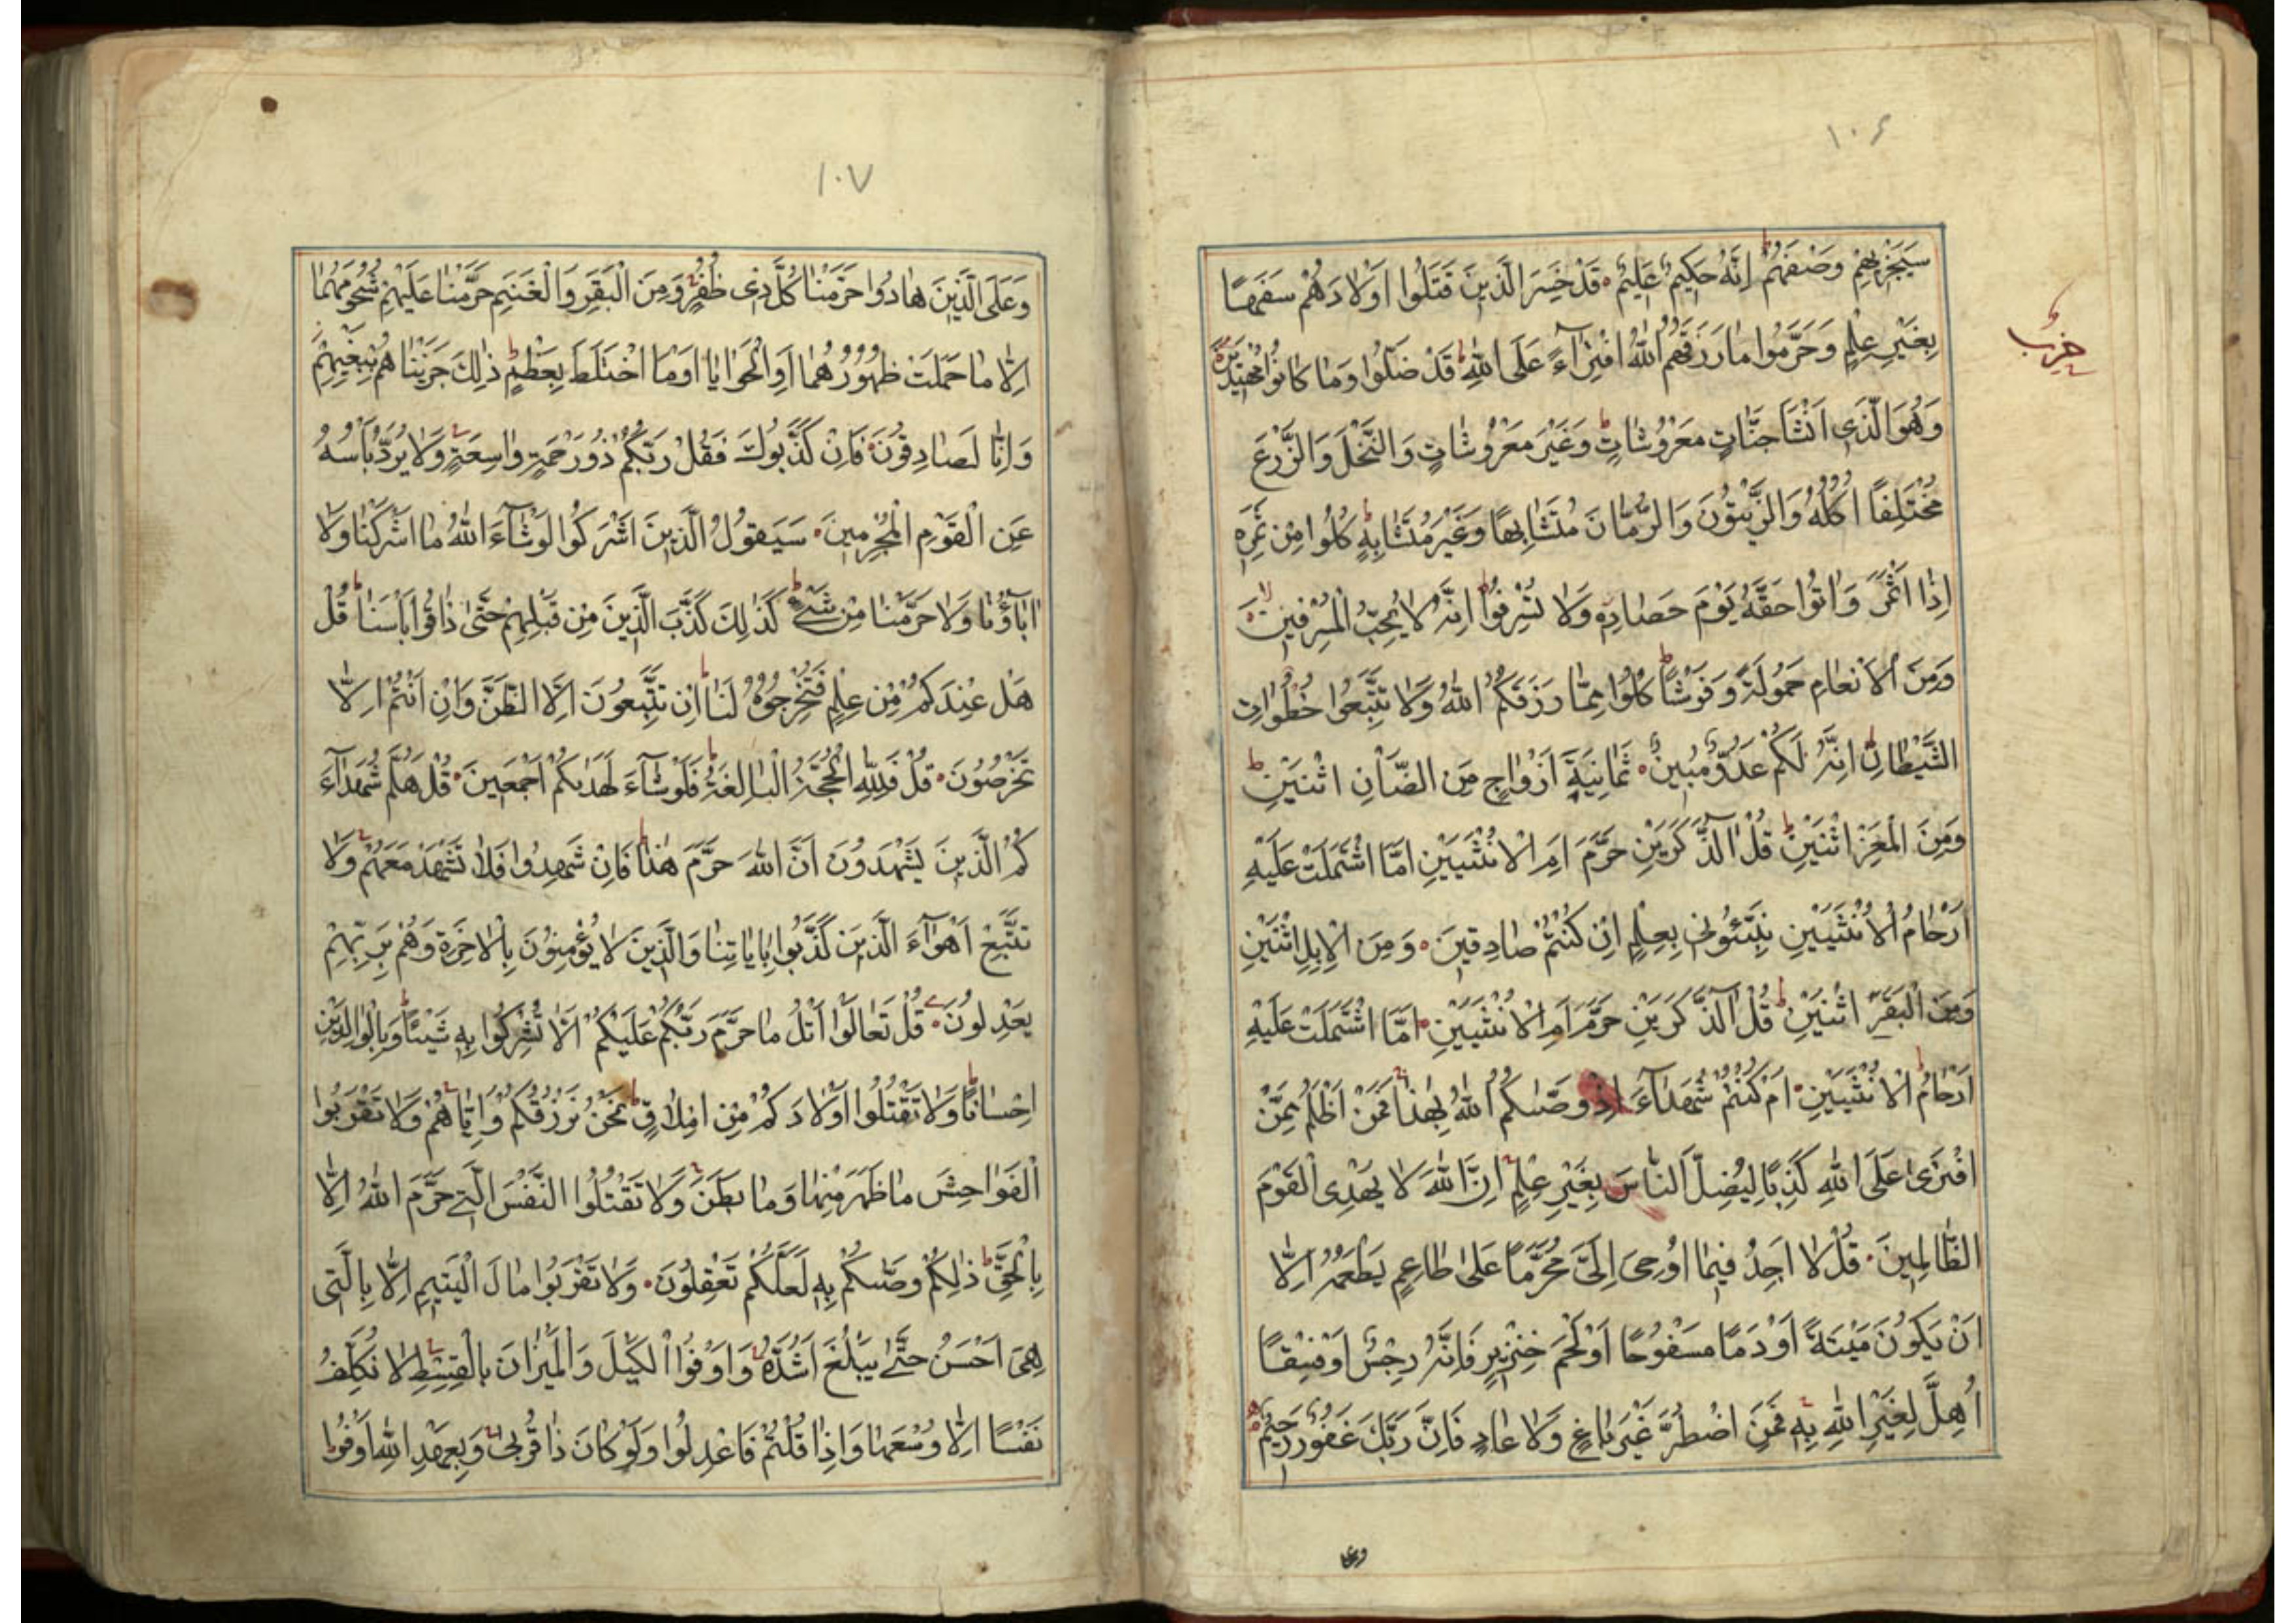 ١٠۶
سَيَجْزِيهِمْ وَصْفَهُمْ اِنَّهُ حَكِيمٌ عَلِيمٌ قَدْ خَسِرَ الَّذِينَ قَتَلُوا اَوْلَادَهُمْ سَفَهًا
بِغَيْرِ عِلْمٍ وَحَرَّمُوا مَا رَزَقَهُمُ اللّٰهُ افْتِرَآءً عَلَى اللّٰهِ قَدْ ضَلُّوا وَمَا كَانُوا مُهْتَدِينَ
حزب
وَهُوَ الَّذِى اَنْشَاَ جَنَّاتٍ مَعْرُوشَاتٍ وَغَيْرَ مَعْرُوشَاتٍ وَالنَّخْلَ وَالزَّرْعَ
مُخْتَلِفًا اُكُلُهُ وَالزَّيْتُونَ وَالرُّمَّانَ مُتَشَابِهًا وَغَيْرَ مُتَشَابِهٍ كُلُوا مِنْ ثَمَرِهِ
اِذَا اَثْمَرَ وَاٰتُوا حَقَّهُ يَوْمَ حَصَادِهِ وَلَا تُسْرِفُوا اِنَّهُ لَا يُحِبُّ الْمُسْرِفِينَ
وَمِنَ الْاَنْعَامِ حَمُولَةً وَفَرْشًا كُلُوا مِمَّا رَزَقَكُمُ اللّٰهُ وَلَا تَتَّبِعُوا خُطُوَاتِ
الشَّيْطَانِ اِنَّهُ لَكُمْ عَدُوٌّ مُبِينٌ ثَمَانِيَةَ اَزْوَاجٍ مِنَ الضَّاْنِ اثْنَيْنِ
وَمِنَ الْمَعْزِ اثْنَيْنِ قُلْ آلذَّكَرَيْنِ حَرَّمَ اَمِ الْاُنْثَيَيْنِ اَمَّا اشْتَمَلَتْ عَلَيْهِ
اَرْحَامُ الْاُنْثَيَيْنِ نَبِّئُونِى بِعِلْمٍ اِنْ كُنْتُمْ صَادِقِينَ وَمِنَ الْاِبِلِ اثْنَيْنِ
وَمِنَ الْبَقَرِ اثْنَيْنِ قُلْ آلذَّكَرَيْنِ حَرَّمَ اَمِ الْاُنْثَيَيْنِ اَمَّا اشْتَمَلَتْ عَلَيْهِ
اَرْحَامُ الْاُنْثَيَيْنِ اَمْ كُنْتُمْ شُهَدَآءَ اِذْ وَصّٰىكُمُ اللّٰهُ بِهٰذَا فَمَنْ اَظْلَمُ مِمَّنْ
افْتَرٰى عَلَى اللّٰهِ كَذِبًا لِيُضِلَّ النَّاسَ بِغَيْرِ عِلْمٍ اِنَّ اللّٰهَ لَا يَهْدِى الْقَوْمَ
الظَّالِمِينَ قُلْ لَا اَجِدُ فِيمَا اُوحِىَ اِلَىَّ مُحَرَّمًا عَلٰى طَاعِمٍ يَطْعَمُهُ اِلَّا
اَنْ يَكُونَ مَيْتَةً اَوْ دَمًا مَسْفُوحًا اَوْ لَحْمَ خِنْزِيرٍ فَاِنَّهُ رِجْسٌ اَوْ فِسْقًا
اُهِلَّ لِغَيْرِ اللّٰهِ بِهِ فَمَنِ اضْطُرَّ غَيْرَ بَاغٍ وَلَا عَادٍ فَاِنَّ رَبَّكَ غَفُورٌ رَحِيمٌ
وعلى
١٠٧
وَعَلَى الَّذِينَ هَادُوا حَرَّمْنَا كُلَّ ذِى ظُفُرٍ وَمِنَ الْبَقَرِ وَالْغَنَمِ حَرَّمْنَا عَلَيْهِمْ شُحُومَهُمَا
اِلَّا مَا حَمَلَتْ ظُهُورُهُمَا اَوِ الْحَوَايَا اَوْ مَا اخْتَلَطَ بِعَظْمٍ ذٰلِكَ جَزَيْنَاهُمْ بِبَغْيِهِمْ
وَاِنَّا لَصَادِقُونَ فَاِنْ كَذَّبُوكَ فَقُلْ رَبُّكُمْ ذُو رَحْمَةٍ وَاسِعَةٍ وَلَا يُرَدُّ بَاْسُهُ
عَنِ الْقَوْمِ الْمُجْرِمِينَ سَيَقُولُ الَّذِينَ اَشْرَكُوا لَوْ شَآءَ اللّٰهُ مَا اَشْرَكْنَا وَلَا
اٰبَآؤُنَا وَلَا حَرَّمْنَا مِنْ شَىْءٍ كَذٰلِكَ كَذَّبَ الَّذِينَ مِنْ قَبْلِهِمْ حَتّٰى ذَاقُوا بَاْسَنَا قُلْ
هَلْ عِنْدَكُمْ مِنْ عِلْمٍ فَتُخْرِجُوهُ لَنَا اِنْ تَتَّبِعُونَ اِلَّا الظَّنَّ وَاِنْ اَنْتُمْ اِلَّا
تَخْرُصُونَ قُلْ فَلِلّٰهِ الْحُجَّةُ الْبَالِغَةُ فَلَوْ شَآءَ لَهَدٰىكُمْ اَجْمَعِينَ قُلْ هَلُمَّ شُهَدَآءَ
كُمُ الَّذِينَ يَشْهَدُونَ اَنَّ اللّٰهَ حَرَّمَ هٰذَا فَاِنْ شَهِدُوا فَلَا تَشْهَدْ مَعَهُمْ وَلَا
تَتَّبِعْ اَهْوَآءَ الَّذِينَ كَذَّبُوا بِاٰيَاتِنَا وَالَّذِينَ لَا يُؤْمِنُونَ بِالْاٰخِرَةِ وَهُمْ بِرَبِّهِمْ
يَعْدِلُونَ قُلْ تَعَالَوْا اَتْلُ مَا حَرَّمَ رَبُّكُمْ عَلَيْكُمْ اَلَّا تُشْرِكُوا بِهِ شَيْئًا وَبِالْوَالِدَيْنِ
اِحْسَانًا وَلَا تَقْتُلُوا اَوْلَادَكُمْ مِنْ اِمْلَاقٍ نَحْنُ نَرْزُقُكُمْ وَاِيَّاهُمْ وَلَا تَقْرَبُوا
الْفَوَاحِشَ مَا ظَهَرَ مِنْهَا وَمَا بَطَنَ وَلَا تَقْتُلُوا النَّفْسَ الَّتِى حَرَّمَ اللّٰهُ اِلَّا
بِالْحَقِّ ذٰلِكُمْ وَصّٰىكُمْ بِهِ لَعَلَّكُمْ تَعْقِلُونَ وَلَا تَقْرَبُوا مَالَ الْيَتِيمِ اِلَّا بِالَّتِى
هِىَ اَحْسَنُ حَتّٰى يَبْلُغَ اَشُدَّهُ وَاَوْفُوا الْكَيْلَ وَالْمِيزَانَ بِالْقِسْطِ لَا نُكَلِّفُ
نَفْسًا اِلَّا وُسْعَهَا وَاِذَا قُلْتُمْ فَاعْدِلُوا وَلَوْ كَانَ ذَا قُرْبٰى وَبِعَهْدِ اللّٰهِ اَوْفُوا